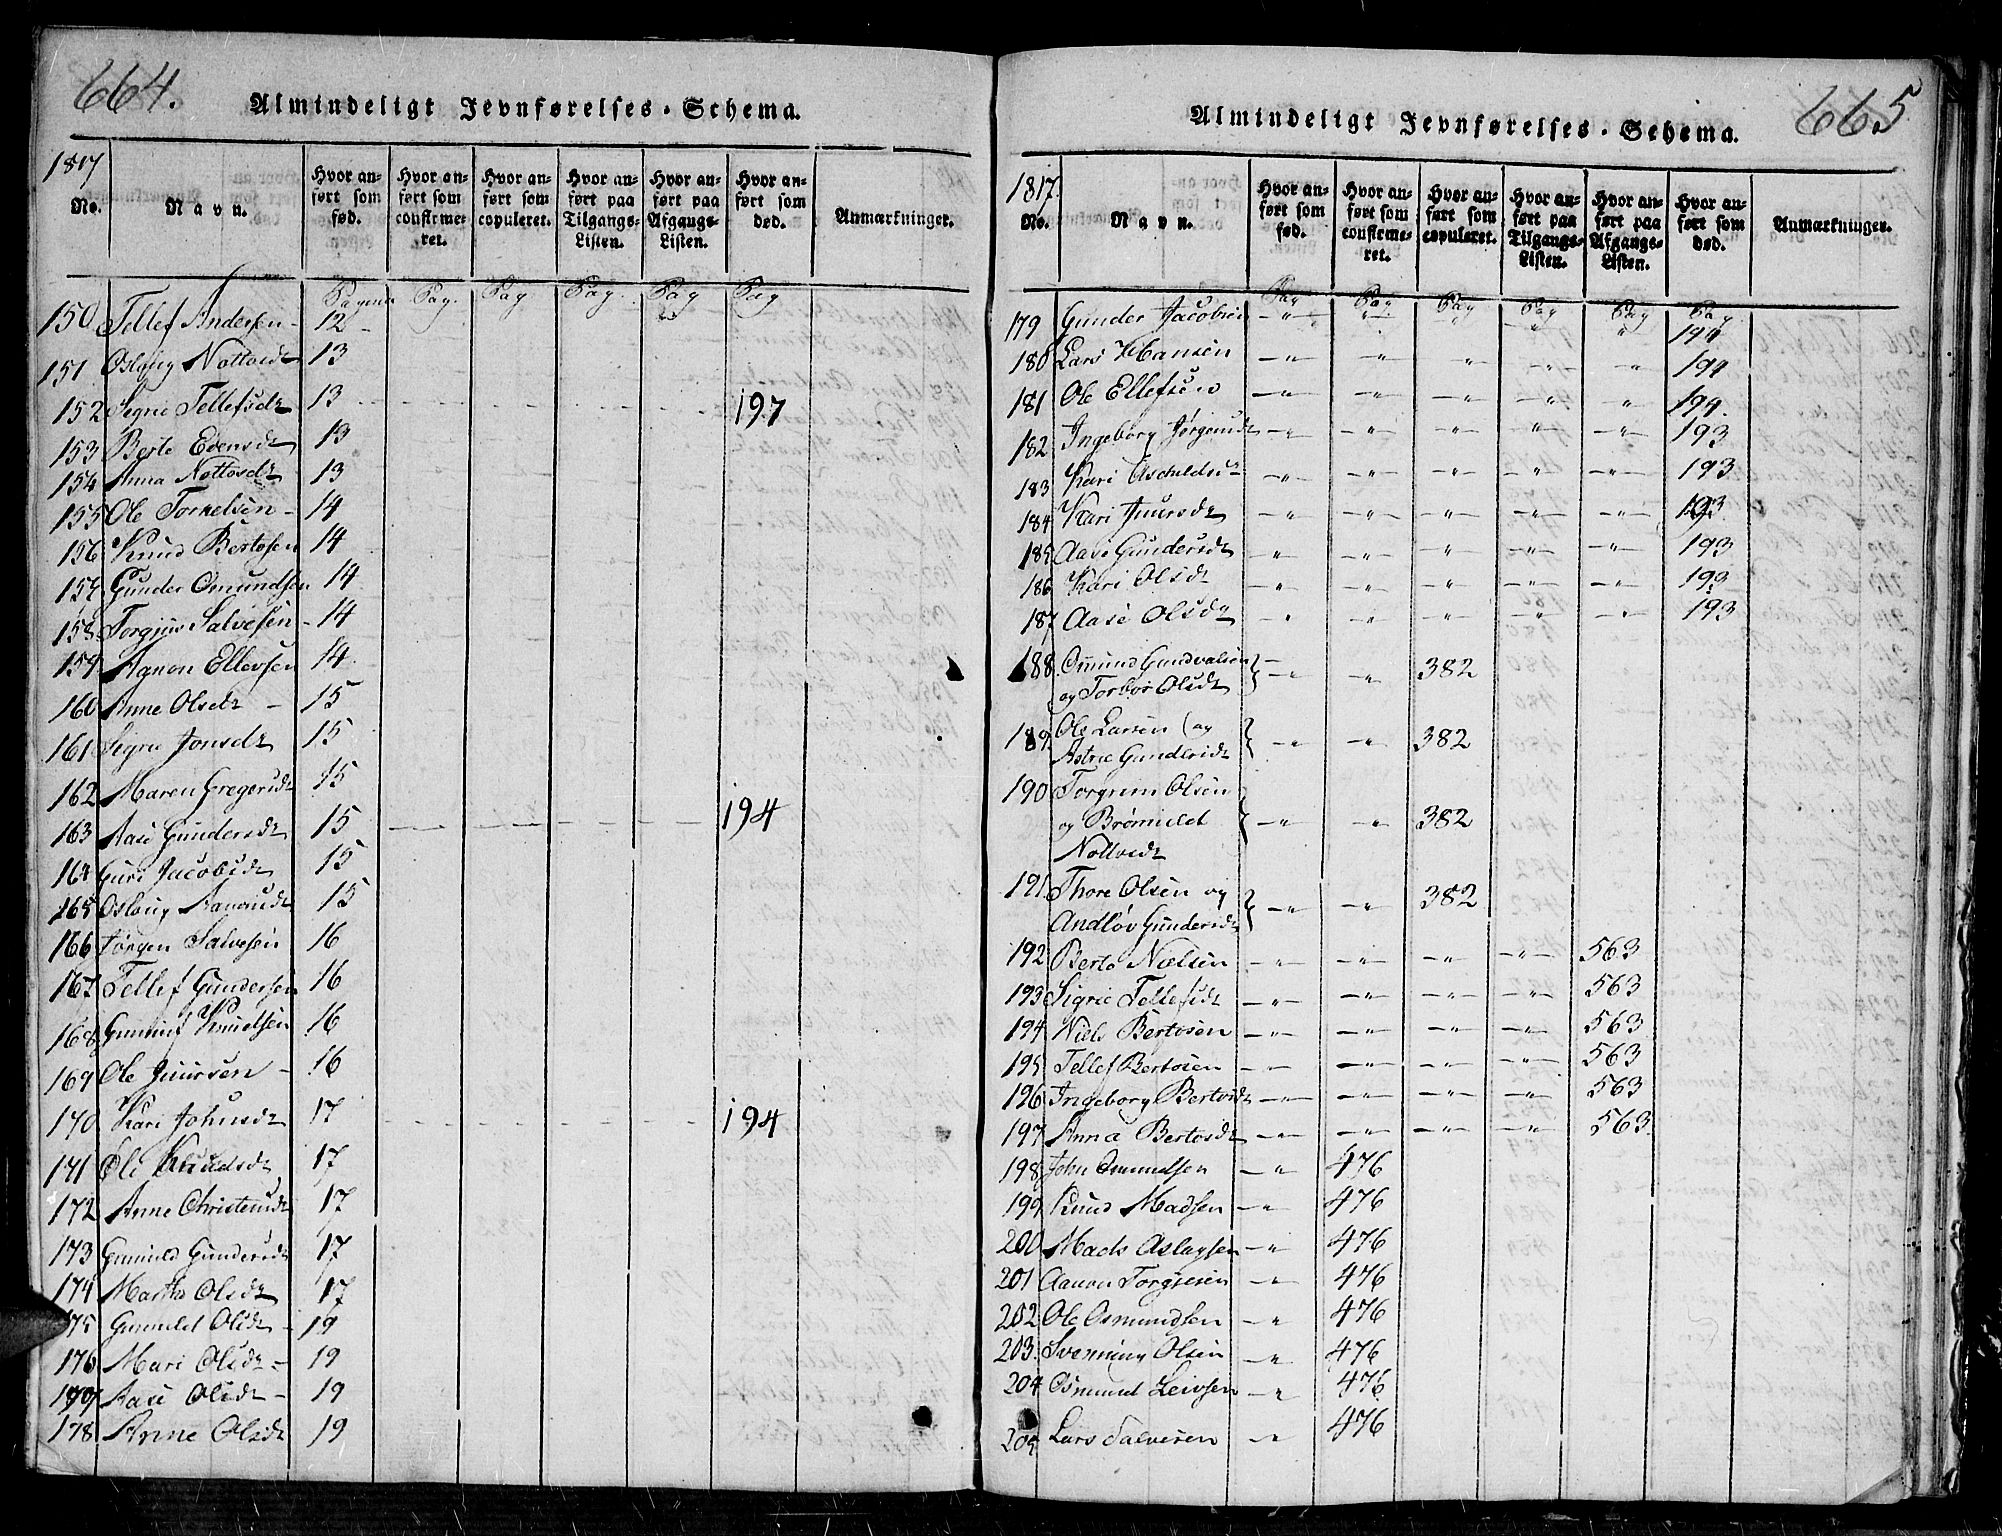 664.
Almindeligt Jevnførelses-Schema.
1817
No.
Navn.
Hvor anført som fød.
Hvor anført som confirmeret.
Hvor anført som copuleret.
Hvor anført paa Tilgangs-Listen.
Hvor anført paa Afgangs-Listen.
Hvor anført som død.
Anmærkninger.
Pagina Pag. Pag Pag. Pag Pag
150 Tellef Andersen - 12 -
151 Oslaug Nottosdr 13
152 Segrie Tellefsdr 13 197
153 Berte Evensdr 13
154 Anna Nottosdr 13
155 Ole Torkelsen - 14
156 Knud Bertosen 14
157 Gunder Omundsen 14
158 Torgius Salvesen - 14
159 Aanon Ellevsen 14
160 Anne Olsdr - 15
161 Segrie Jonsdr 15
162 Maren Gregersdr 15
163 Aase Gundersdr 15 194
164 Guri Jacobsdr 15
165 Oslaug Aanonsdr 15
166 Jørgen Salvesen 16
167 Tellef Gundersen 16
168 Gunluf Knudsen 16
169 Ole Juursen - 16
170 Kari Johnsdr 17 194
171 Ole Knudsdr 17
172 Anne Christensdr 17
173 Gunnild Gundersdr 17
174 Martha Olsdr 17
175 Gunnild Olsdr - 19
176 Mari Olsdr - 19
177 Aase Olsdr - 19
178 Anne Olsdr 19
665
Almindeligt Jevnførelses-Schema.
1817.
No.
Navn.
Hvor anført som fød.
Hvor anført som confirmeret.
Hvor anført som copuleret.
Hvor anført paa Tilgangs-Listen.
Hvor anført paa Afgangs-Listen.
Hvor anført som død.
Anmærkninger.
Pag Pag Pag Pag Pag Pag
179 Gunder Jacobsen -"- " " " " 194
180 Lars Hansen -"- " " -"- -"- 194
181 Ole Ellefsen -"- -"- -"- -"- -"- 194.
182 Ingeborg Jørgensdr -"- -"- -"- -"- -"- 193
183 Kari Aschildsdr -"- -"- -"- -"- -"- 193
184 Kari Juursdr -"- -"- -"- -"- -"- 193
185 Aase Gundersdr -"- -"- -"- -"- -"- 193
186 Kari Olsdr -"- -"- -"- -"- -"- 193
187 Aase Olsdr -"- -"- -"- -"- -"- 193
188. Omund Gundvalsen
og Torbor Olsdr } -"- -"- 382
189. Ole Larsen (og
Astrie Gundersdr } -"- -"- 382
190 Torgrim Olsen
og Brømild } -"- -"- 382
Nottosdr
191 Thore Olsen og
Andløv Gundersdr } -"- -"- 382
192 Berte Nielsen -"- -"- -"- -"- 563
193 Sigrie Tellefsdr -"- -"- -"- -"- 563
194 Niels Bertosen -"- -"- -"- -"- 563
195 Tellef Bertosen -"- -"- -"- -"- 563
196 Ingeborg Bertosdr -"- -"- -"- -"- 563
197 Anna Bertosdr -"- -"- -"- -"- 563.
198 John Omundsen -"- 476
199 Knud Madsen -"- 476
200 Mads Aslagsen -"- 476
201 Aanon Torgiesen -"- 476
202 Ole Osmundsen -"- 476
203. Svenning Olsen -"- 476
204 Osmund Leivsen -"- 476
205 Lars Salvesen -"- 476